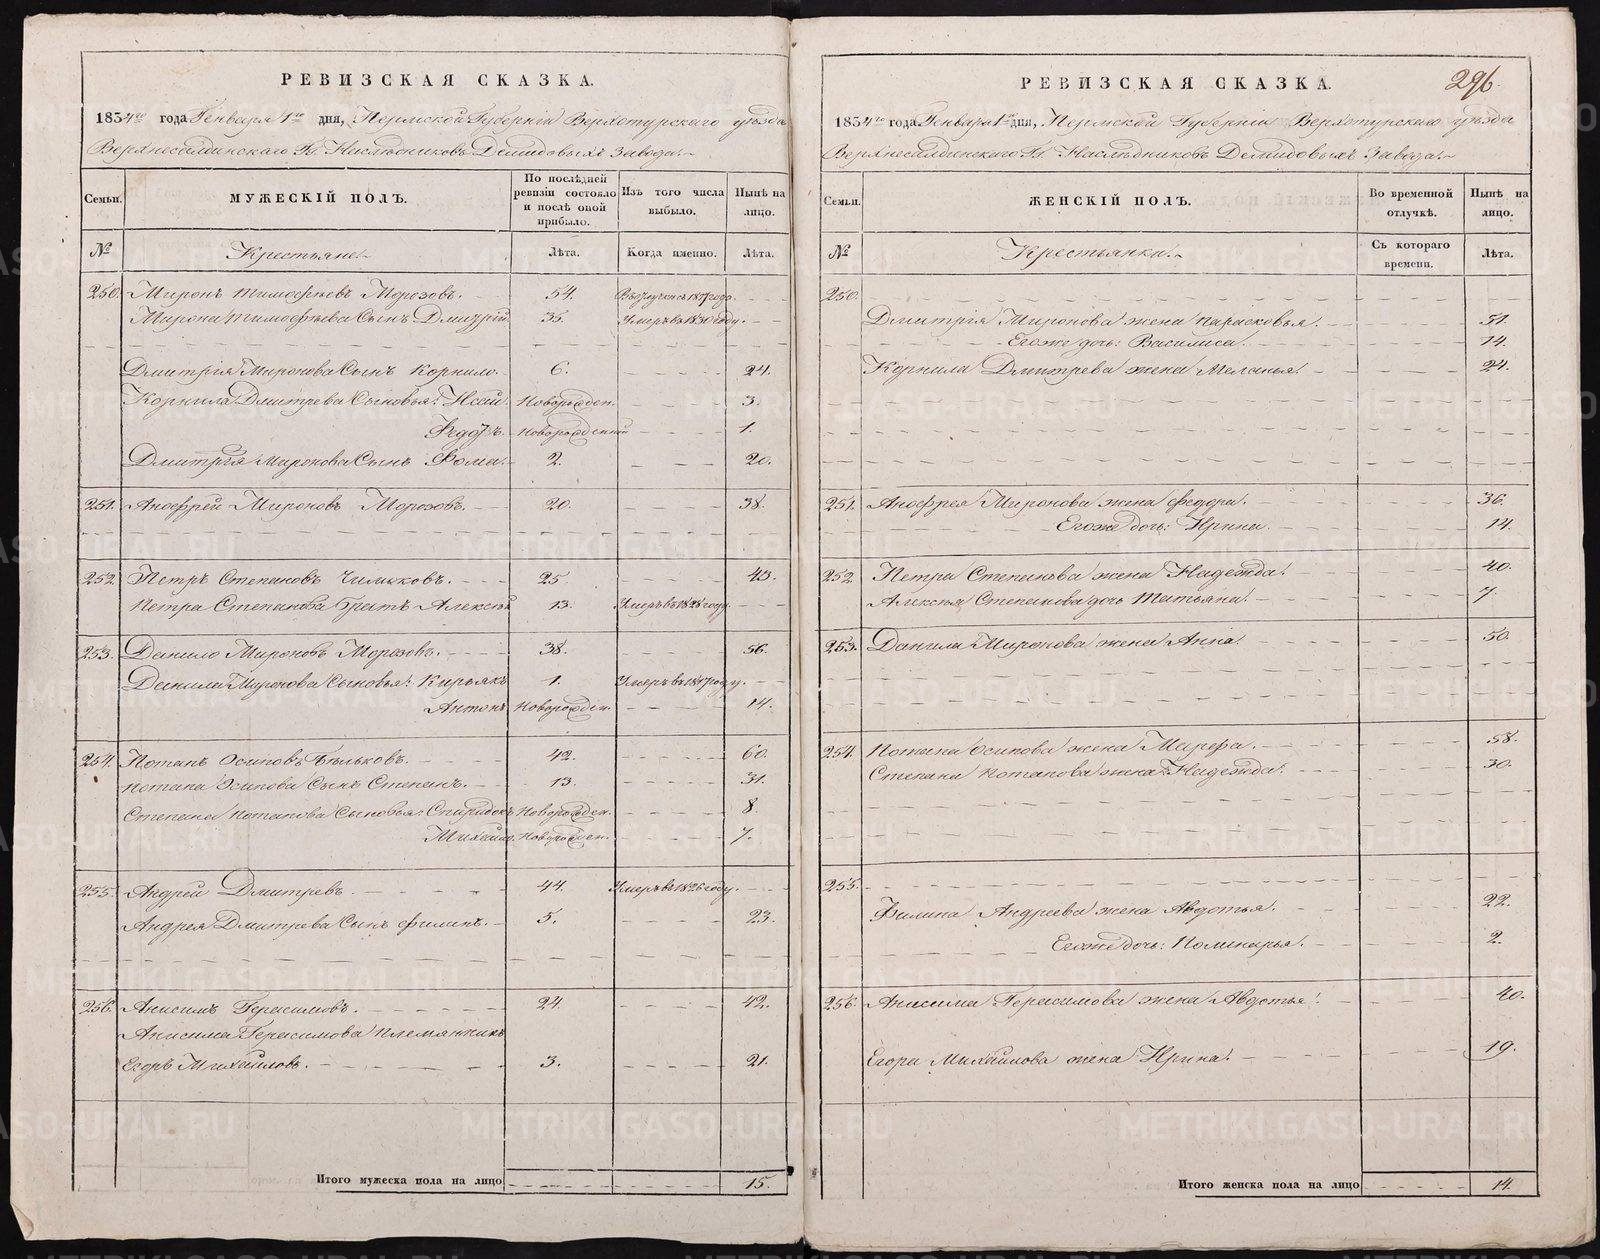 РЕВИЗСКАЯ СКАЗКА.
1834го года Генваря 1го дня, Пермской Губернiи Верхотурскаго уѣзда
Верхнесалдинскаго Гг. Наслѣдниковъ Демидовыхъ Завода.
Семьи.
МУЖЕСКIЙ ПОЛЪ.
По послѣдней ревизiи состояло и послѣ оной прибыло.
Изъ того числа выбыло.
Нынѣ на лицо.
№ Крестьяне. Лѣта. Когда именно. Лѣта.
250. Миронъ Тимофѣевъ Морозовъ. 54. 
Мирона Тимофѣева Сынъ Дмитрiй 35. Умеръ въ 1830 году.
Дмитрiя Миронова Сынъ Корнило. 6. 24.
Корнила Дмитрева Сыновья: Новорожден. 3.
Новорожденный 1.
Дмитрiя Миронова Сынъ Фома. 2. 20.
251. Анофрей Мироновъ Морозовъ. 20. 38.
252. Петръ Степановъ 25. 43.
Петра Степанова братъ Алексѣй 13. Умеръ въ 1828 году.
253. Данило Мироновъ Морозовъ. 38. 56.
Данила Миронова Сыновья: Кирьякъ 1. Умеръ въ 1817 году.
Антонъ Новорожден. 14.
254. Потапъ Осиповъ Бѣльковъ. 42. 60.
Потапа Осипова Сынъ Степанъ. 13. 31.
Степана Потапова Сыновья: Спиридонъ Новорожден. 8.
Михайло Новорожден. 7.
255. Андрей Дмитревъ. 44. Умеръ въ 1826 году.
Андрея Дмитрева Сынъ Филипъ. 5. 23.
256. Анисимъ Герасимовъ. 24. 42.
Анисима Герасимова племянникъ
Егоръ Михайловъ. 3. 21.
Итого мужеска пола на лицо 15.
РЕВИЗСКАЯ СКАЗКА. 296.
1834го года Генваря 1го дня, Пермской Губернiи Верхотурскаго уѣзда
Верхнесалдинскаго Гг. Наслѣдниковъ Демидовыхъ Завода.
Семьи.
ЖЕНСКIЙ ПОЛЪ.
Во временной отлучкѣ.
Нынѣ на лицо.
№ Крестьянки. Съ котораго времени. Лѣта.
250.
Дмитрiя Миронова жена Парасковья. 51.
Егоже дочь: Василиса. 14.
Корнила Дмитрева жена Меланья. 24.
251. Анофрея Миронова жена Федора. 36.
Егоже дочь: Ирина. 14.
252. Петра Степанова жена Надежда. 40.
Алексѣя Степанова дочь Татьяна. 7.
253. Данила Миронова жена Анна. 50.
254. Потапа Осипова жена Марфа. 58.
Степана Потапова жена Надежда. 30.
255.
Филипа Андреева жена Авдотья. 22.
Егоже дочь: 2.
256. Анисима Герасимова жена Авдотья. 40.
Егора Михайлова жена Ирина. 19.
Итого женска пола на лицо 14.
METRIKI.GASO-URAL.RU